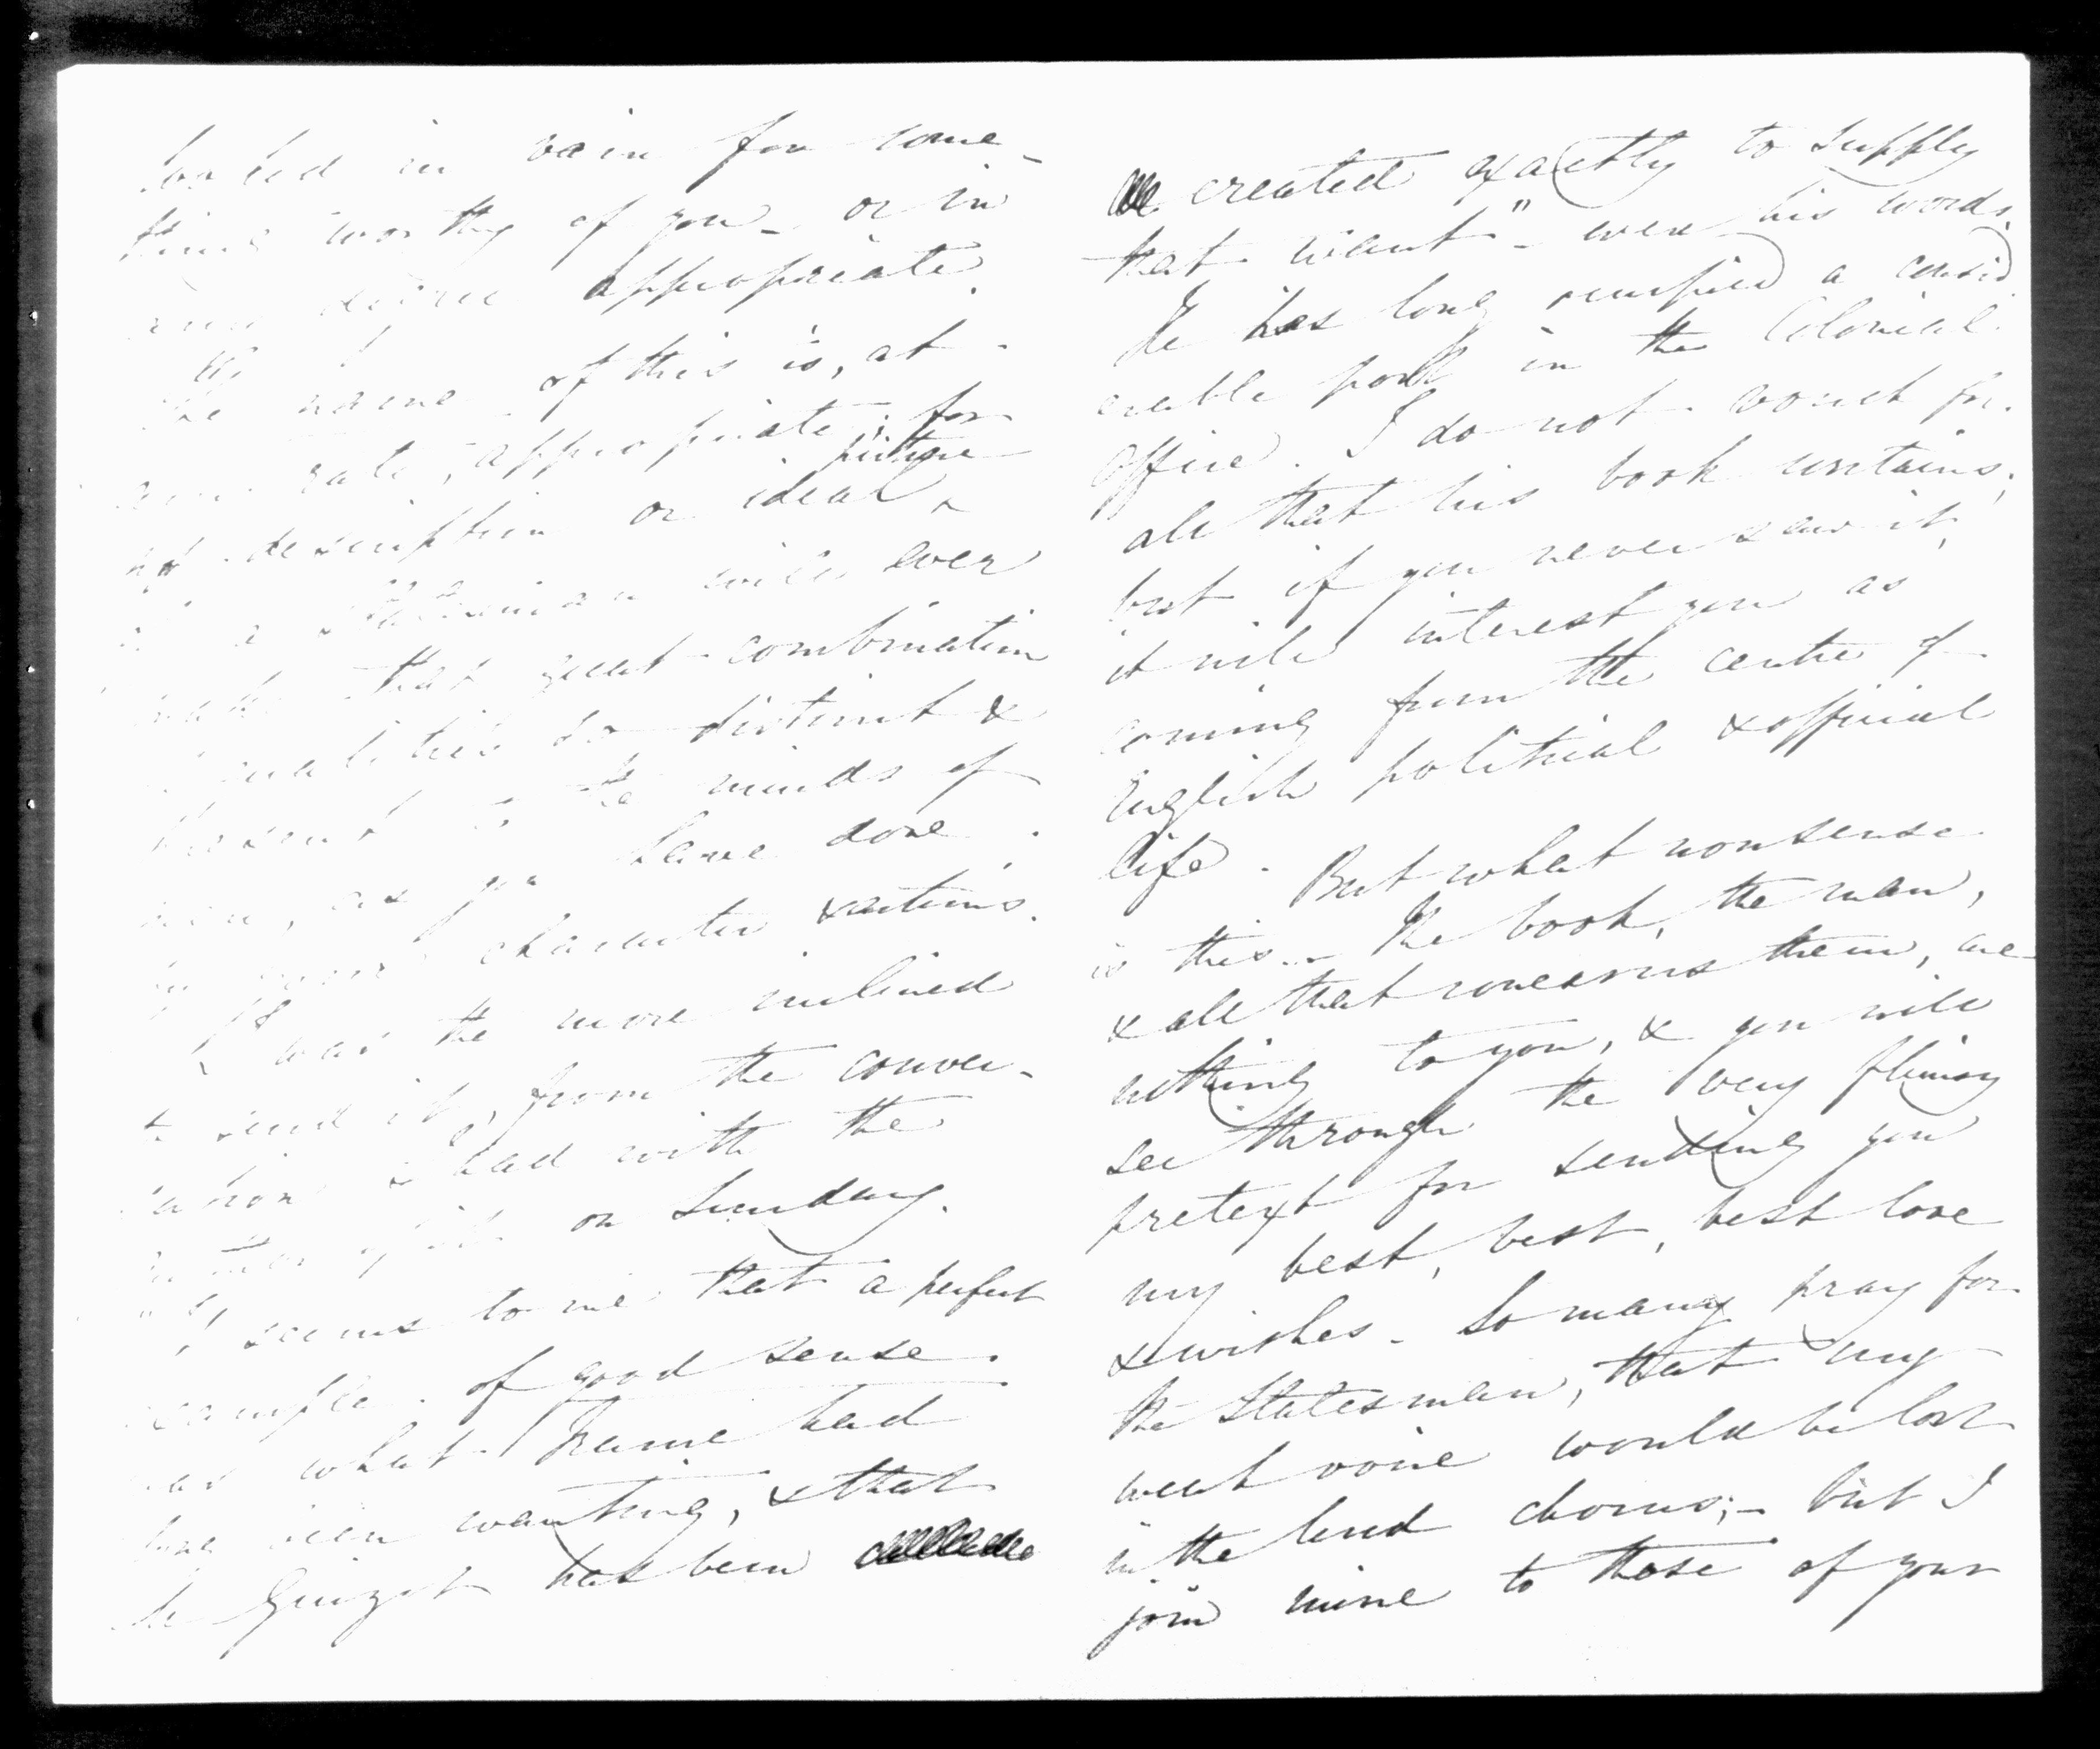 looked in vain for some-
thing worthy of you - or in
any degree appropriate.
The name of this is, at
any rate, appropriate; for
no description or ideal picture
of a Statesman will ever
make that great combination
qualities so distinct &
present to the minds of
men, as you have done
by your character & actions.
I was the more inclined
to send it, from the conver-
sation I had with the
author of it on Sunday.
"It seems to me that a perfect
example of good sense
was what France had
been wanting, & that
M. Guizot has been
created exactly to supply
that want" - were his words.
He has long occupied a consid
erable post in the Colonial
Office. I do not vouch for
all that his book contains;
but if you never saw it,
it will interest you as
coming from the centre of
English political & official
life. But what nonsense
is this - The book, the man,
& all that concerns them, are
nothing to you, & you will
see through the very flimsy
pretext for sending you
my best, best, best love
& wishes. So many pray for
the Statesman, that my
weak voice would be lost
in the loud chorus; - but I
join mine to those of your